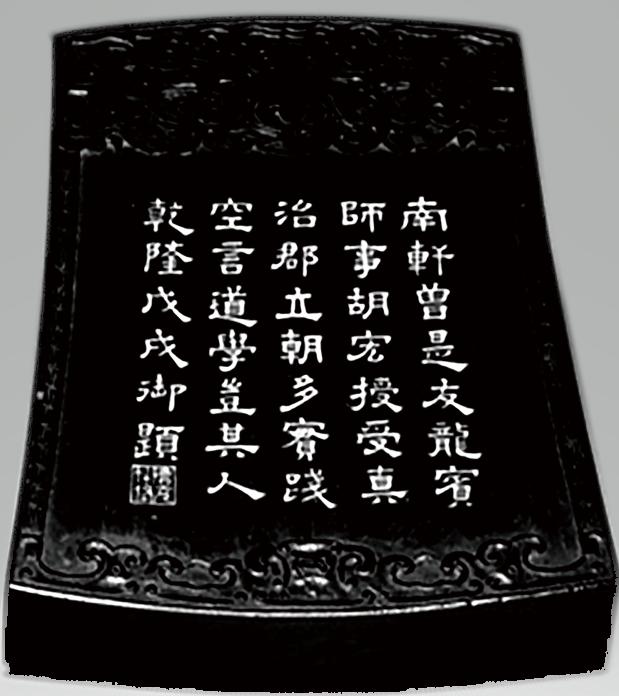 南軒曽是友龍賓
師事胡宏授受真
治郡立朝多實踐
空言道學豈其人
乾隆戊戌御題